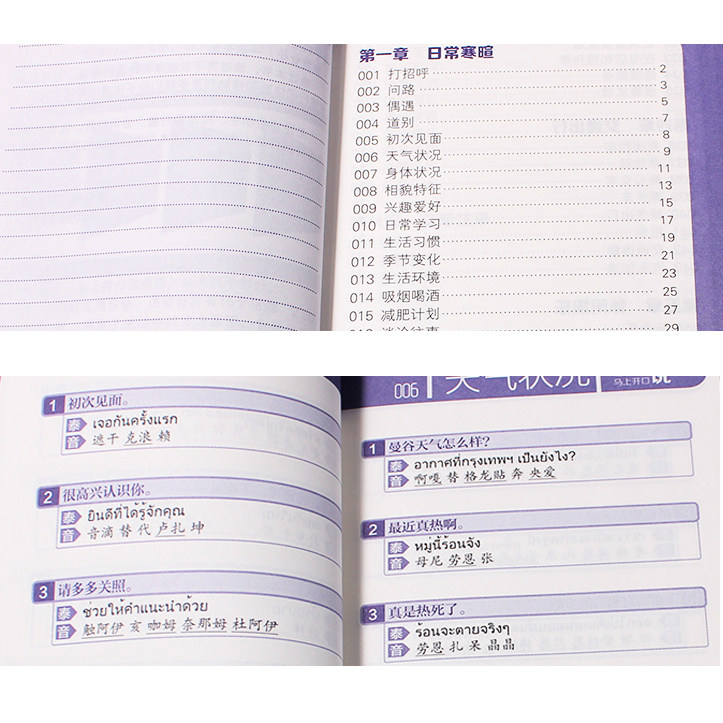 第一章 日常寒暄
001 打招呼 2
002 问路 3
003 偶遇 5
004 道别 7
005 初次见面 8
006 天气状况 9
007 身体状况 11
008 相貌特征 13
009 兴趣爱好 15
010 日常学习 17
011 生活习惯 19
012 季节变化 21
013 生活环境 23
014 吸烟喝酒 25
015 减肥计划 27
29
1 初次见面。
泰 เจอกันครั้งแรก
音 遮干 克浪 赖
2 很高兴认识你。
泰 ยินดีที่ได้รู้จักคุณ
音 音滴 替 代 卢扎 坤
3 请多多关照。
泰 ช่วยให้คำแนะนำด้วย
音 触阿伊 亥 咖姆 奈那姆 杜阿伊
006 天气状况 马上开口说
1 曼谷天气怎么样?
泰 อากาศที่กรุงเทพฯ เป็นยังไง?
音 啊嘎 替 格龙贴 奔 央爱
2 最近真热啊。
泰 หมู่นี้ร้อนจัง
音 母尼 劳恩 张
3 真是热死了。
泰 ร้อนจะตายจริงๆ
音 劳恩 扎 呆 晶晶